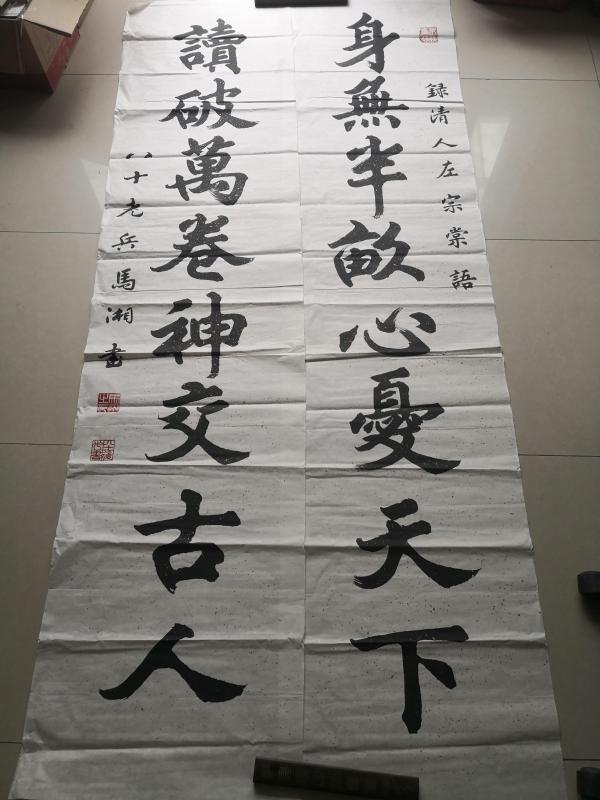 録清人左宗棠語
身無半畝心憂天下
讀破萬卷神交古人
八十老兵馬湘書